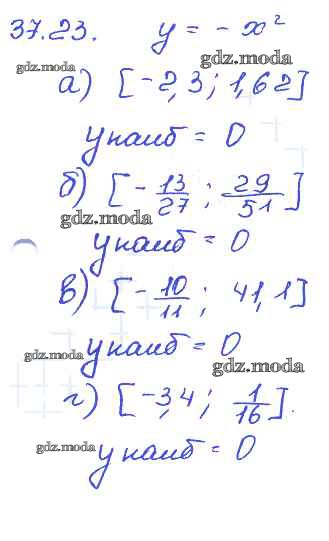 37.23. y = - x²
gdz.moda
gdz.moda
а) [-2,3; 1,62]
y наиб = 0
б) [-13/27; 29/51]
gdz.moda
y наиб = 0
в) [-10/11; 41,1]
y наиб = 0
gdz.moda
gdz.moda
г) [-3,4; 1/16].
gdz.moda
y наиб = 0